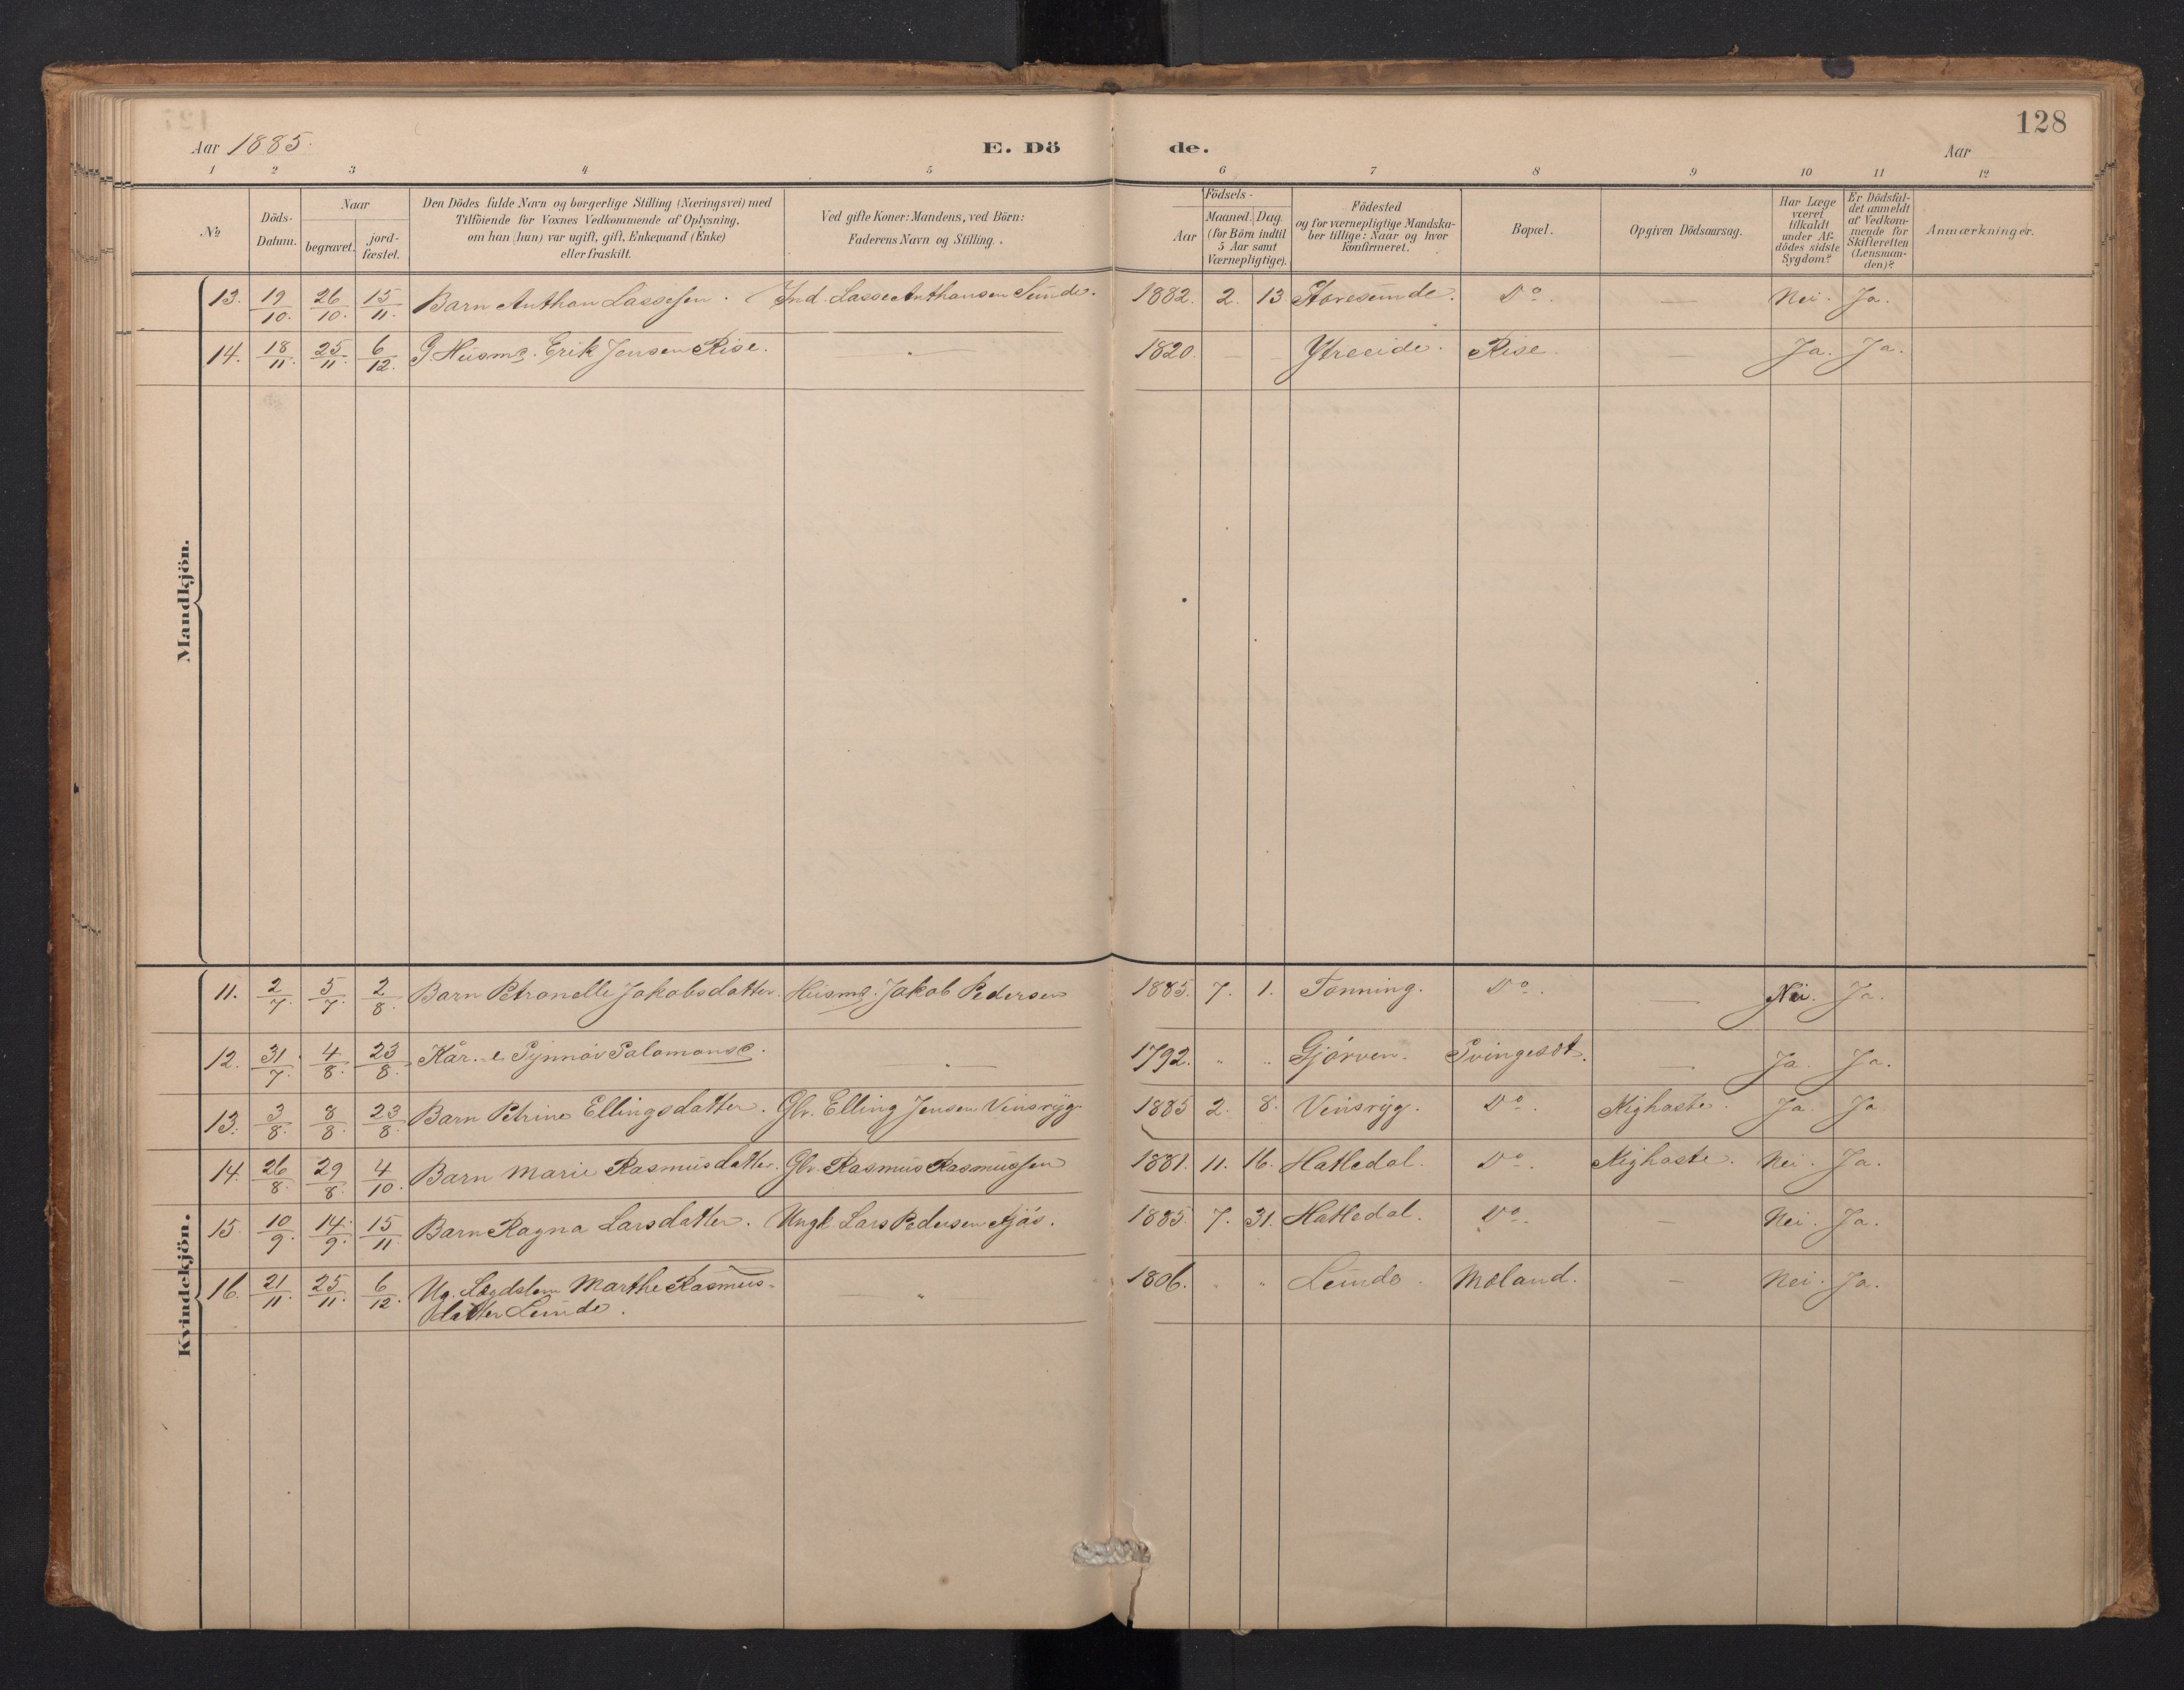 128
Aar 1885.
E. Dö de.
Aar
1 2 3 4 5 6 7 8 9 10 11 12
№
Döds-Datum.
Naar
begravet.
jord-fæstet.
Den Dödes fulde Navn og borgerlige Stilling (Næringsvei) med
Tilföiende for Voxnes Vedkommende af Oplysning,
om han (hun) var ugift, gift, Enkemand (Enke)
eller fraskilt.
Ved gifte Koner: Mandens, ved Börn:
Faderens Navn og Stilling.
Födsels-
Aar
Maaned. Dag.
(for Börn indtil
5 Aar samt
Værnepligtige).
Födested
og for værnepligtige Mandska-
ber tillige: Naar og hvor
Konfirmeret.
Bopæl.
Opgiven Dödsaarsag.
Har Læge
været
tilkaldt
under Af-
dödes sidste
Sygdom?
Er Dödsfal-
det anmeldt
af Vedkom-
mende for
Skifteretten
(Lensman-
den)?
Anmærkninger.
Mandkjön.
13. 19/10. 26/10. 15/11. Barn Anthon Lassesen. Ind. Lasse Anthonsen Sunde. 1882. 2. 13. Storesunde. Do. — Nei. Ja.
14. 18/11. 25/11. 6/12. G. Husmd. Erik Jensen Rise. 1820. — — Ytreeide. Rise. — Ja. Ja.
Kvindekjön.
11. 2/7. 5/7. 2/8. Barn Petronelle Jakobsdatter. Husmd. Jakob Pedersen 1885. 7. 1. Tonning. Do. — Nei. Ja.
12. 31/7. 4/8. 23/8. Synnøv Salomonsd. — 1792. " " Gjørven. — Ja. Ja.
13. 3/8. 8/8. 23/8. Barn Petrine Ellingsdatter. Gbr. Elling Jensen Vinsryg. 1885 2. 8. Vinsryg. Do. Kighoste. Ja. Ja
14. 26/8. 29/8. 4/10. Barn Marie Rasmusdatter. Gbr. Rasmus Rasmussen 1881. 11. 16. Hatledal. Do. Kighoste. Nei. Ja.
15. 10/9. 14/9. 15/11. Barn Ragna Larsdatter. Ungk. Lars Pedersen 1885. 7. 31. Hatledal. Do. — Nei. Ja.
16. 21/11. 25/11. 6/12. Ug. Lægdslem Marthe Rasmus- — " 1806. " " Lunde. Moland. — Nei. Ja.
datter Lunde.